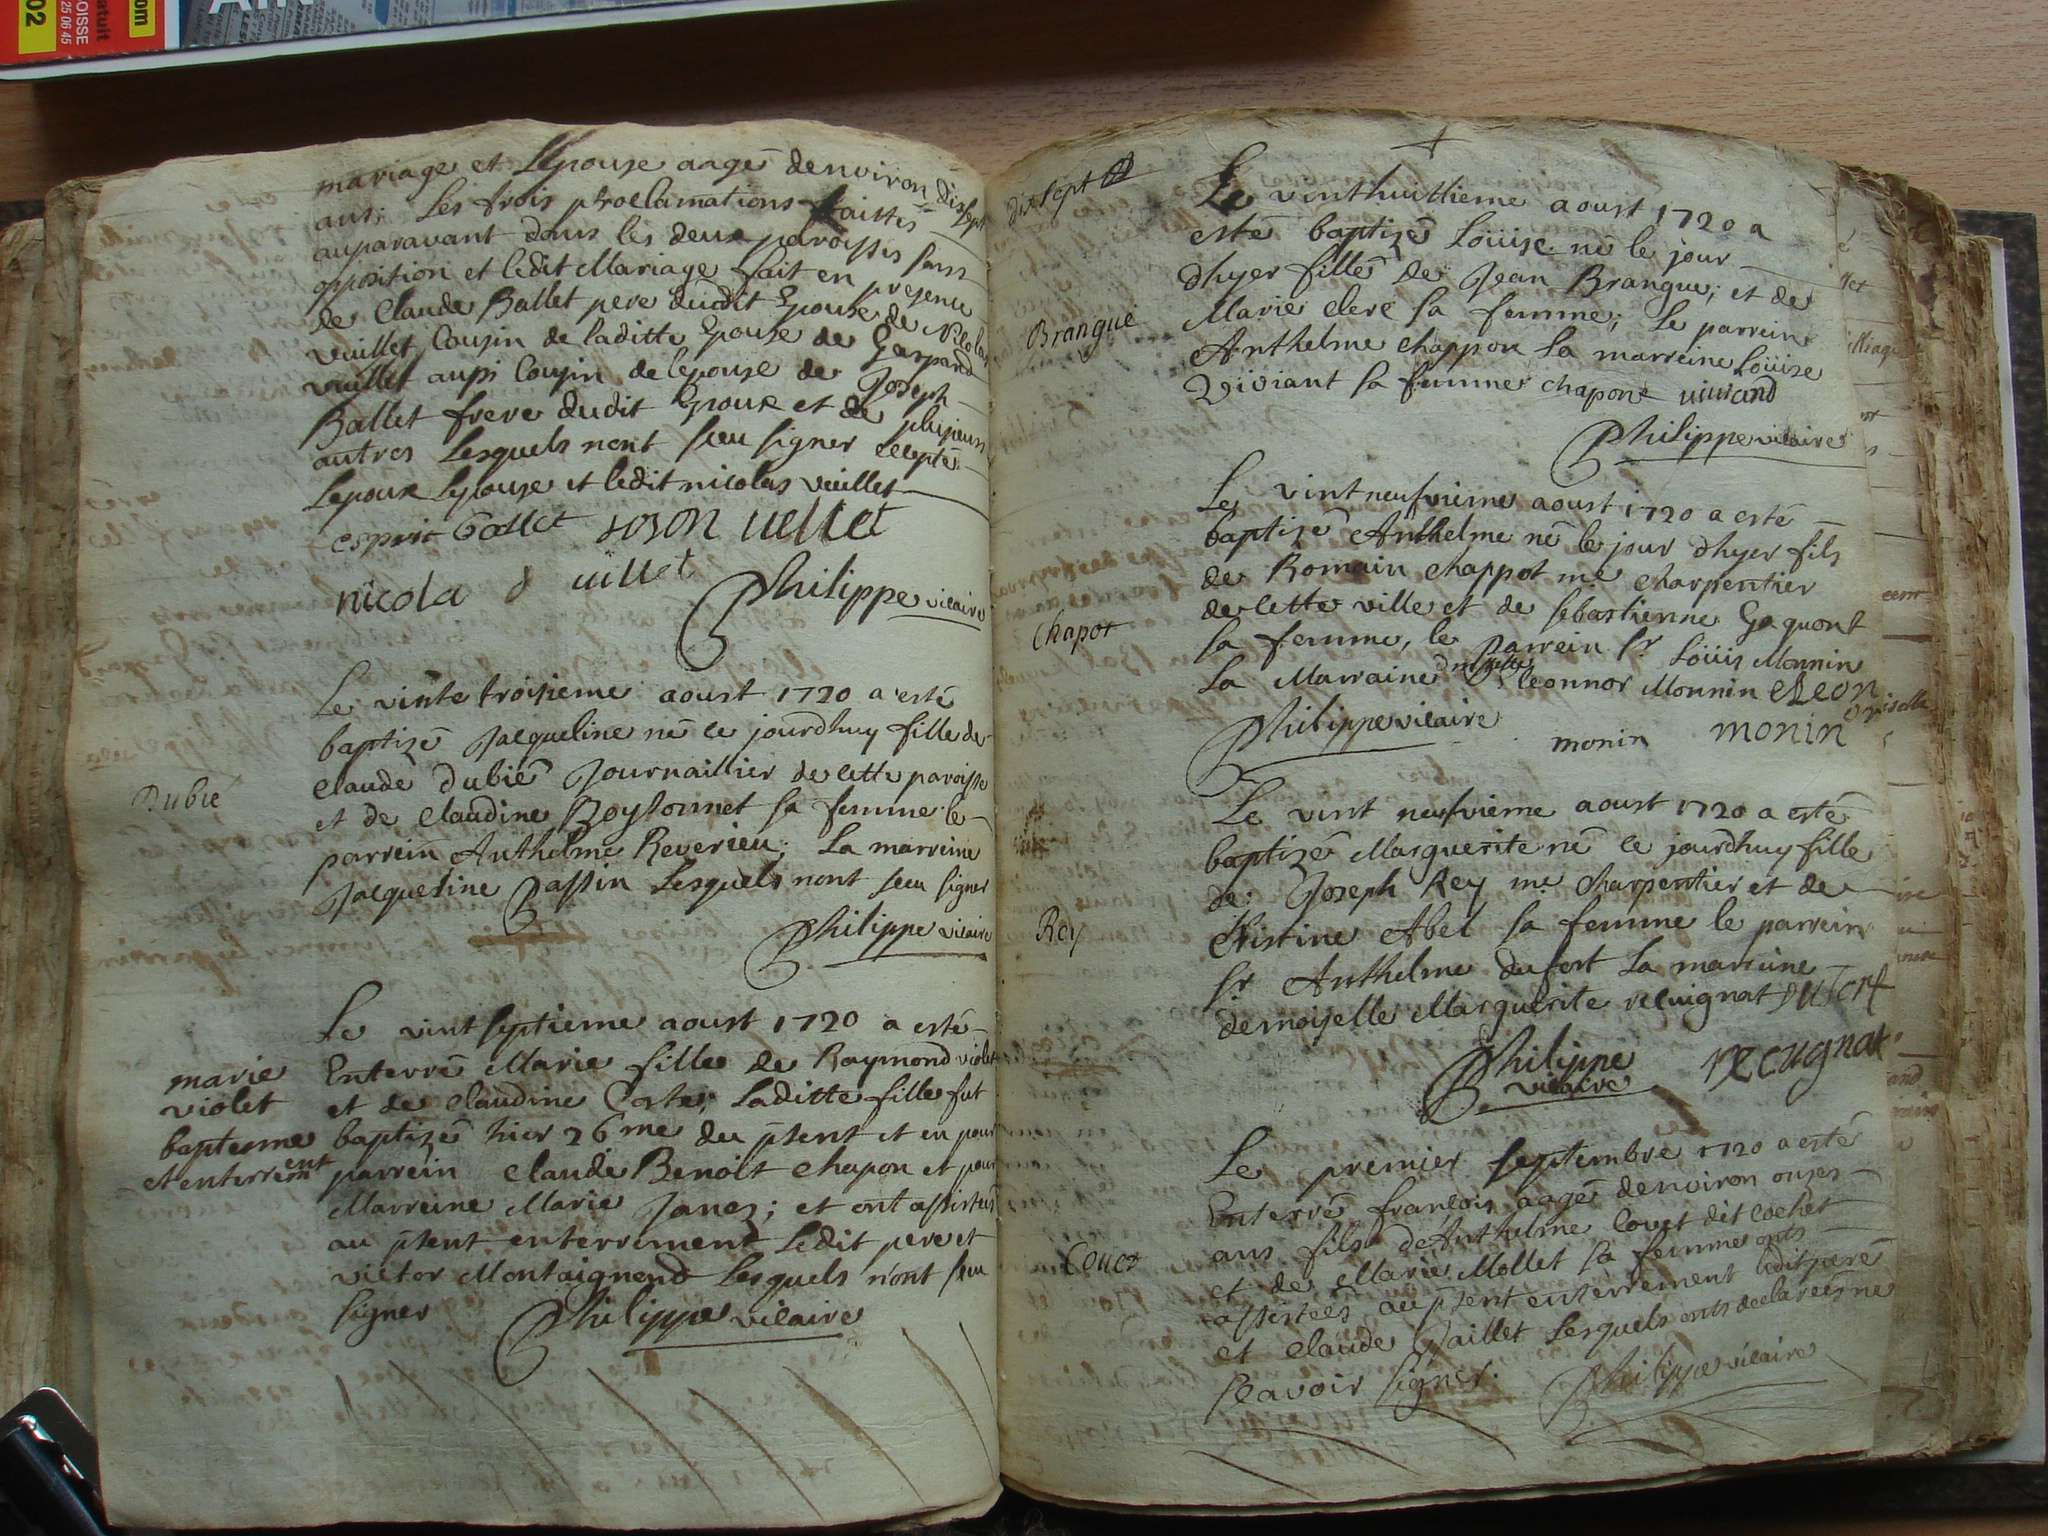 mariage et Lepouse aagé denviron dixsept
ans; Les trois proclamations faittes
auparavant dans les deux paroisses sans
opposition et ledit Mariage fait en presence
de Claude Ballet pere dudit Epoux de Nicolas
vuillet Cousin de laditte Epouse de Gaspard
vuillet aussi Cousin de lepouse de Joseph
Ballet frere dudit Epoux et de plusieurs
autres Lesquels nont sceu signer Excepté
Lepoux Lepouse et ledit nicolas vuillet
esprit ballet soson uellet
nicola uillet
Philippe vicaire
Dubié
Le vinte troisieme aoust 1720 a esté
baptizé Jacqueline né ce jourdhuy fille de
Claude Dubié Journaillier de cette paroisse
et de Claudine Boyssonnet sa femme le
parrein Anthelme Reverieu; La marreine
Jacqueline Passin Lesquels nont sceu signer
Philippe vicaire
marie
violet
bapteme
et enterrement
Le vint septieme aoust 1720 a esté
Enterré Marie fille de Raymond violet
et de Claudine Coste; laditte fille fut
baptizé hier 26me du psent et eu pour
parrein Claude Benoit Chapon et pour
Marreine Marie Janez; et ont assistéés
au psent enterrement Ledit pere et
victor Montaignend Lesquels n'ont sceu
signer
Philippe vicaire
dix sept
Brangue
Le vinthuittieme aoust 1720 a
esté baptizé Loüise né le jour
dhyer fille de Jean Brangue; et de
Marie clerc sa femme; Le parrein
Anthelme chappon La marreine Loüize
Viviant sa femme chapone uiuiand
Philippe vicaire
Chapot
Le vint neufvieme aoust 1720 a esté
baptizé Anthelme né le jour dhyer fils
de Romain Chappot me. charpentier
de Cette ville et de sebastienne Gaquont
sa femme, le Parrein Sr. Loüis Monnin
La Marraine dmoiselle Eleonnor Monnin
Philippe vicaire
monin monin
Rey
Le vint neufvieme aoust 1720 a esté
baptizé Marguerite né ce jourdhuy fille
de Joseph Rey me. Charpentier et de
Christine Abel sa femme le parrein
Sr. Anthelme dufort La marreine
demoyselle Marguerite recuignat Dufort
Philippe
vicaire
recugnat
Couet
Le premier septembre 1720 a esté
Enterré francois aagéé denviron onzes
ans fils dAnthelme Couet dit Cochet
et de Marie Mollet sa femme onts
assistéés au psent enterrement ledit pere
et Claude Paillet Lesquels onts declaréés ne
sçavoir signer.
Philippe vicaire